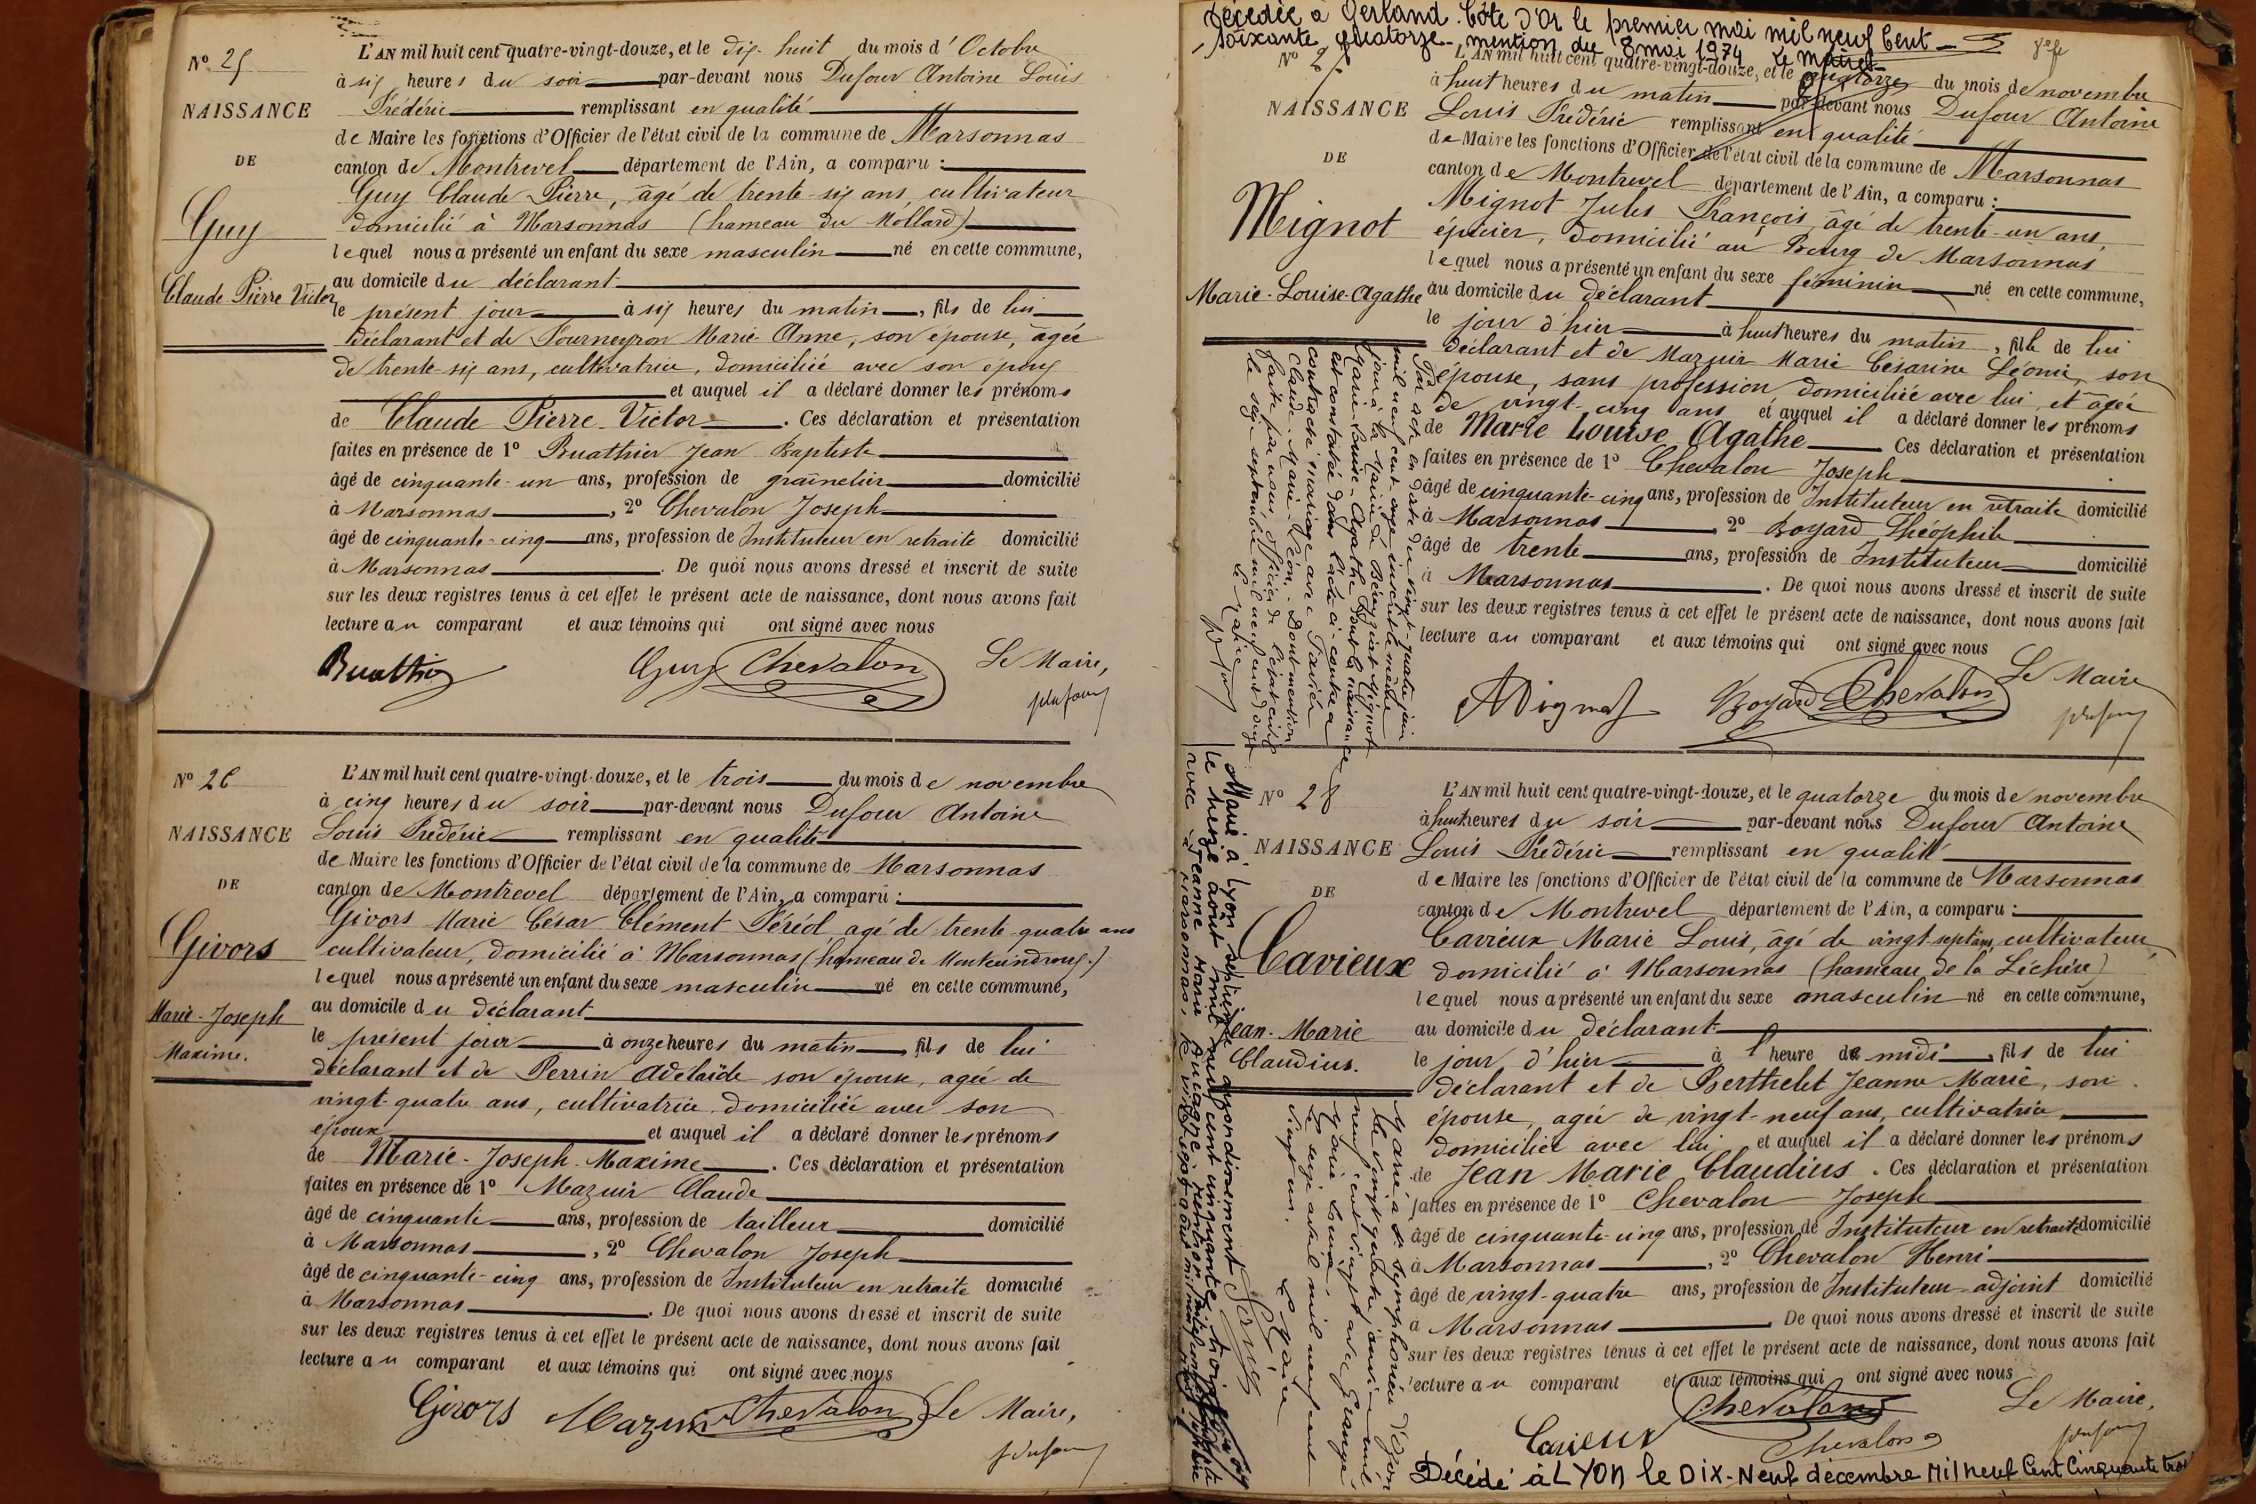 Nº 25
NAISSANCE
DE
Guy
Claude Pierre Victor
L'AN mil huit cent quatre-vingt-douze, et le dix-huit du mois d'Octobre
à six heures du soir par-devant nous Dufour Antoine Louis
Frédéric remplissant en qualité
de Maire les fonctions d'Officier de l'état civil de la commune de Marsonnas
canton de Montrevel département de l'Ain, a comparu :
Guy Claude Pierre, âgé de trente-six ans, cultivateur
domicilié à Marsonnas (hameau du Mollard)
lequel nous a présenté un enfant du sexe masculin né en cette commune,
au domicile du déclarant
le présent jour à six heures du matin, fils de lui
déclarant et de Fourneyron Marie Anne, son épouse, âgée
de trente-six ans, cultivatrice, domiciliée avec son époux
et auquel il a déclaré donner les prénoms
de Claude Pierre Victor. Ces déclaration et présentation
faites en présence de 1º Buathier Jean Baptiste
âgé de cinquante-un ans, profession de grainetier domicilié
à Marsonnas, 2º Chevalon Joseph
âgé de cinquante-cinq ans, profession de Instituteur en retraite domicilié
à Marsonnas. De quoi nous avons dressé et inscrit de suite
sur les deux registres tenus à cet effet le présent acte de naissance, dont nous avons fait
lecture au comparant et aux témoins qui ont signé avec nous
Le Maire,
Buathier Guy Chevalon
Nº 26
NAISSANCE
DE
Givors
Marie-Joseph
Maxime.
L'AN mil huit cent quatre-vingt-douze, et le trois du mois de novembre
à cinq heures du soir par-devant nous Dufour Antoine
Louis Frédéric remplissant en qualité
de Maire les fonctions d'Officier de l'état civil de la commune de Marsonnas
canton de Montrevel département de l'Ain, a comparu :
Givors Marie César Clément Féréol agé de trente quatre ans
cultivateur, domicilié à Marsonnas (hameau de
lequel nous a présenté un enfant du sexe masculin né en cette commune,
au domicile du déclarant
le présent jour à onze heures du matin, fils de lui
déclarant et de Perrin Adelaïde son épouse, agée de
vingt-quatre ans, cultivatrice domiciliée avec son
époux et auquel il a déclaré donner les prénoms
de Marie-Joseph-Maxime. Ces déclaration et présentation
faites en présence de 1º Mazuir Claude
âgé de cinquante ans, profession de tailleur domicilié
à Marsonnas, 2º Chevalon Joseph
âgé de cinquante-cinq ans, profession de Instituteur en retraite domicilié
à Marsonnas. De quoi nous avons dressé et inscrit de suite
sur les deux registres tenus à cet effet le présent acte de naissance, dont nous avons fait
lecture au comparant et aux témoins qui ont signé avec nous
Givors Mazuir Chevalon Le Maire,
Décédée à Gerland Côte d'Or le premier mai mil neuf Cent
soixante quatorze - mention du 8 mai 1974 Le Maire
Nº 27
NAISSANCE
DE
Mignot
Marie-Louise-Agathe
L'AN mil huit cent quatre-vingt-douze, et le quatorze du mois de novembre
à huit heures du matin par-devant nous Dufour Antoine
Louis Frédéric remplissant en qualité
de Maire les fonctions d'Officier de l'état civil de la commune de Marsonnas
canton de Montrevel département de l'Ain, a comparu :
Mignot Jules François âgé de trente-un ans,
épicier, domicilié au Bourg de Marsonnas
lequel nous a présenté un enfant du sexe féminin né en cette commune,
au domicile du déclarant
le jour d'hier à huit heures du matin, fille de lui
déclarant et de Mazuir Marie Césarine Léonie, son
épouse, sans profession, domiciliée avec lui et âgée
de vingt-cinq ans et auquel il a déclaré donner les prénoms
de Marie Louise Agathe Ces déclaration et présentation
faites en présence de 1º Chevalon Joseph
âgé de cinquante-cinq ans, profession de Instituteur en retraite domicilié
à Marsonnas 2º Boyard Théophile
âgé de trente ans, profession de Instituteur domicilié
à Marsonnas. De quoi nous avons dressé et inscrit de suite
sur les deux registres tenus à cet effet le présent acte de naissance, dont nous avons fait
lecture au comparant et aux témoins qui ont signé avec nous
Le Maire
Mignot Boyard Chevalon
Par acte en date du vingt-quatre juin
mil neuf cent onze
jour à la Mairie de
Marie-Louise-Agathe dont la naissance
est constatée dans l'acte ci-contre a
contracté mariage avec
Claude-Marie-Léon. Dont mention
faite par nous officier de l'état civil
le seize septembre mil neuf cent onze
Le Maire
Nº 28
NAISSANCE
DE
Cavieux
Jean-Marie
Claudius.
L'AN mil huit cent quatre-vingt-douze, et le quatorze du mois de novembre
à huit heures du soir par-devant nous Dufour Antoine
Louis Frédéric remplissant en qualité
de Maire les fonctions d'Officier de l'état civil de la commune de Marsonnas
canton de Montrevel département de l'Ain, a comparu :
Cavieux Marie Louis, âgé de vingt-sept ans, cultivateur,
domicilié à Marsonnas (hameau de la Léchère)
lequel nous a présenté un enfant du sexe masculin né en cette commune,
au domicile du déclarant
le jour d'hier à l'heure de midi, fils de lui
déclarant et de Berthelet Jeanne Marie, son
épouse, agée de vingt-neuf ans, cultivatrice
domiciliée avec lui et auquel il a déclaré donner les prénoms
de Jean Marie Claudius. Ces déclaration et présentation
faites en présence de 1º Chevalon Joseph
âgé de cinquante-cinq ans, profession de Instituteur en retraite domicilié
à Marsonnas, 2º Chevalon Henri
âgé de vingt-quatre ans, profession de Instituteur adjoint domicilié
à Marsonnas De quoi nous avons dressé et inscrit de suite
sur les deux registres tenus à cet effet le présent acte de naissance, dont nous avons fait
lecture au comparant et aux témoins qui ont signé avec nous
Le Maire,
Cavieux Chevalon
Chevalon
Marié à St Symphorien d'Ozon
le vingt-quatre janvier mil
neuf cent vingt avec
Marie
Le seize avril mil neuf cent
vingt un. Le Maire
Marié à Lyon septième arrondissement
le treize août mil neuf cent cinquante trois
avec Jeanne Marie
à Marsonnas, le
Décédé à LYON le Dix-Neuf décembre Mil neuf Cent Cinquante trois